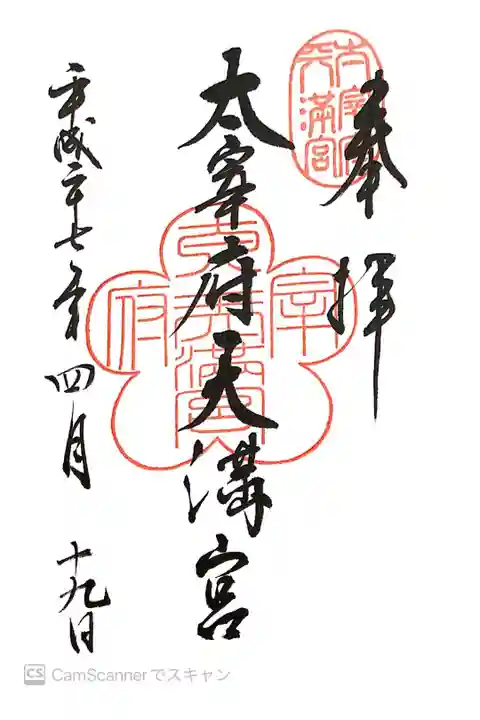 奉拝
太宰府天満宮
平成二十七年四月十九日
太宰府
天満宮
CS CamScannerでスキャン